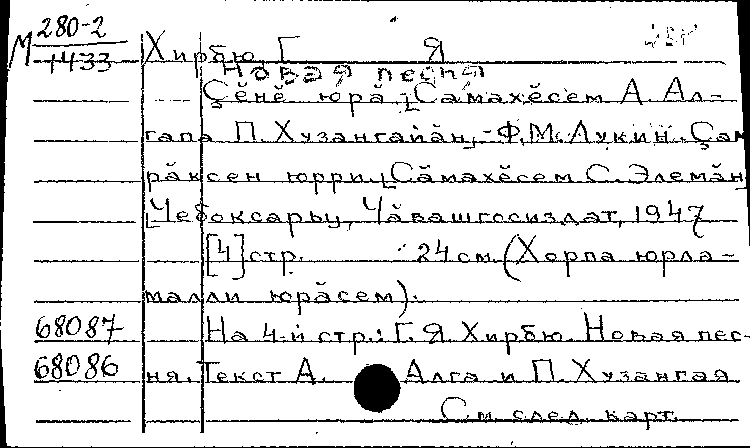 М 280-2
1433
Хирбю Г Я
Новая песня
Ҫӗнӗ юрӑ [Сӑмахӗсем А. Ал-
гапа П. Хузангайӑн,-Ф.М. Лукин. Ҫам
рӑксен юрри. [Сӑмахӗсем С. Элемӑн
[Чебоксары, Чӑвашгосиздат, 1947
[4] стр. 24 см. (Хорпа юрла-
малли юрӑсем).
68087 На 4-й стр.: Г. Я. Хирбю. Новая пес-
68086 ня. Текст А. Алга и П. Хузангая
См. след. карт.